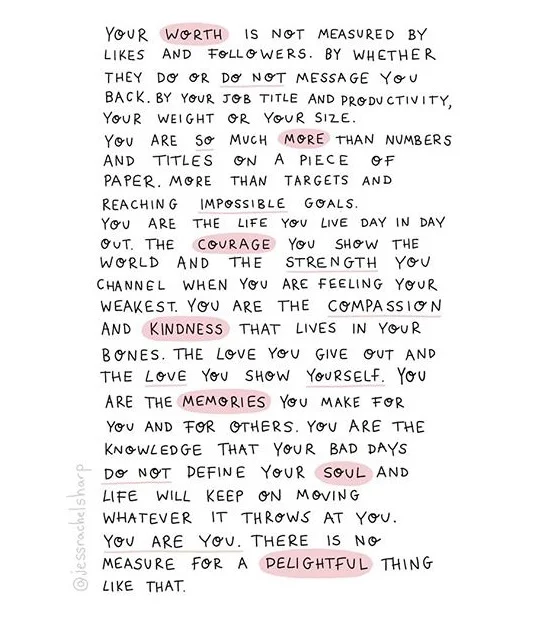 YOUR WORTH IS NOT MEASURED BY
LIKES AND FOLLOWERS. BY WHETHER
THEY DO OR DO NOT MESSAGE YOU
BACK. BY YOUR JOB TITLE AND PRODUCTIVITY,
YOUR WEIGHT OR YOUR SIZE.
YOU ARE SO MUCH MORE THAN NUMBERS
AND TITLES ON A PIECE OF
PAPER. MORE THAN TARGETS AND
REACHING IMPOSSIBLE GOALS.
YOU ARE THE LIFE YOU LIVE DAY IN DAY
OUT. THE COURAGE YOU SHOW THE
WORLD AND THE STRENGTH YOU
CHANNEL WHEN YOU ARE FEELING YOUR
WEAKEST. YOU ARE THE COMPASSION
AND KINDNESS THAT LIVES IN YOUR
BONES. THE LOVE YOU GIVE OUT AND
THE LOVE YOU SHOW YOURSELF. YOU
ARE THE MEMORIES YOU MAKE FOR
YOU AND FOR OTHERS. YOU ARE THE
KNOWLEDGE THAT YOUR BAD DAYS
DO NOT DEFINE YOUR SOUL AND
LIFE WILL KEEP ON MOVING
WHATEVER IT THROWS AT YOU.
YOU ARE YOU. THERE IS NO
MEASURE FOR A DELIGHTFUL THING
LIKE THAT.
@jessrachelsharp